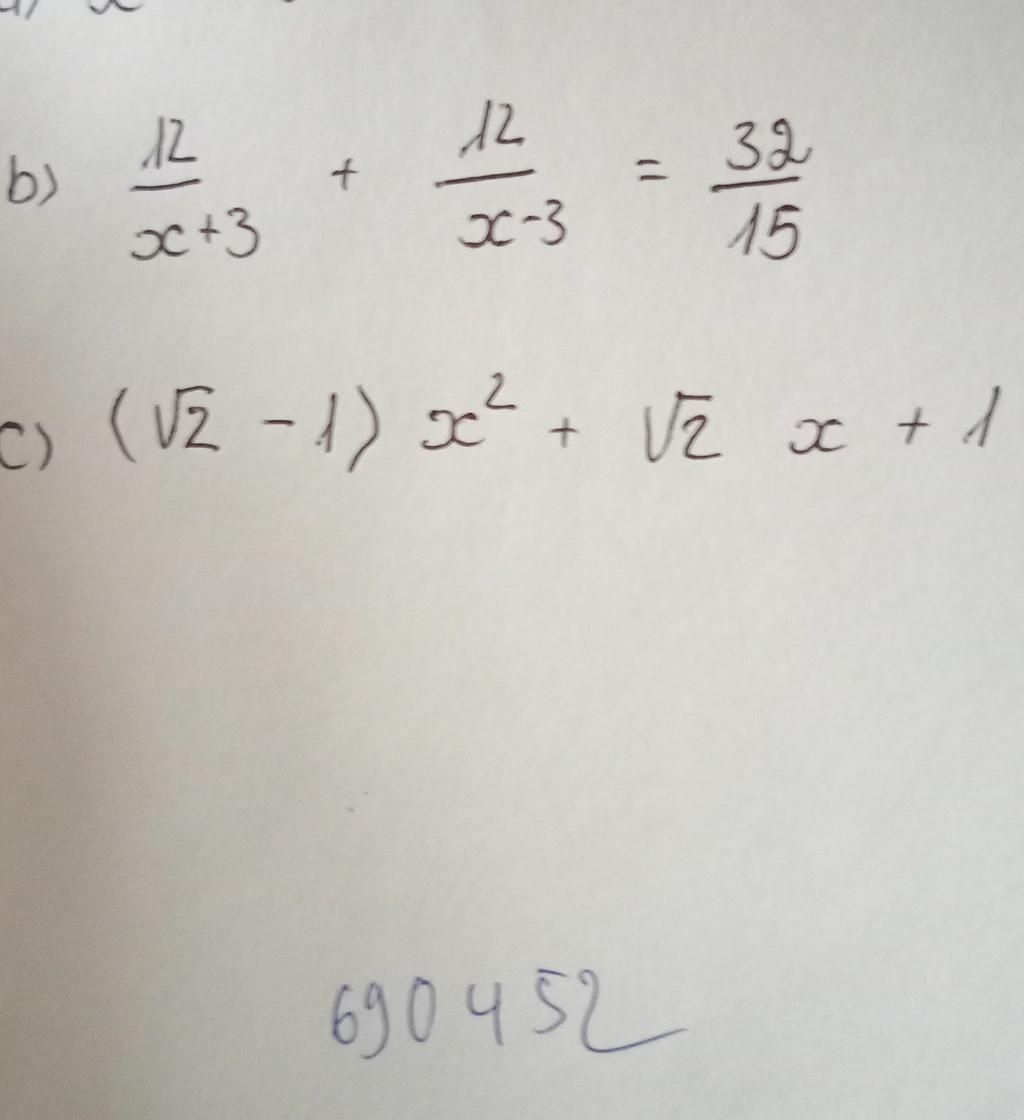 b) 12/(x+3) + 12/(x-3) = 32/15
c) (√2 - 1) x² + √2 x + 1
690452